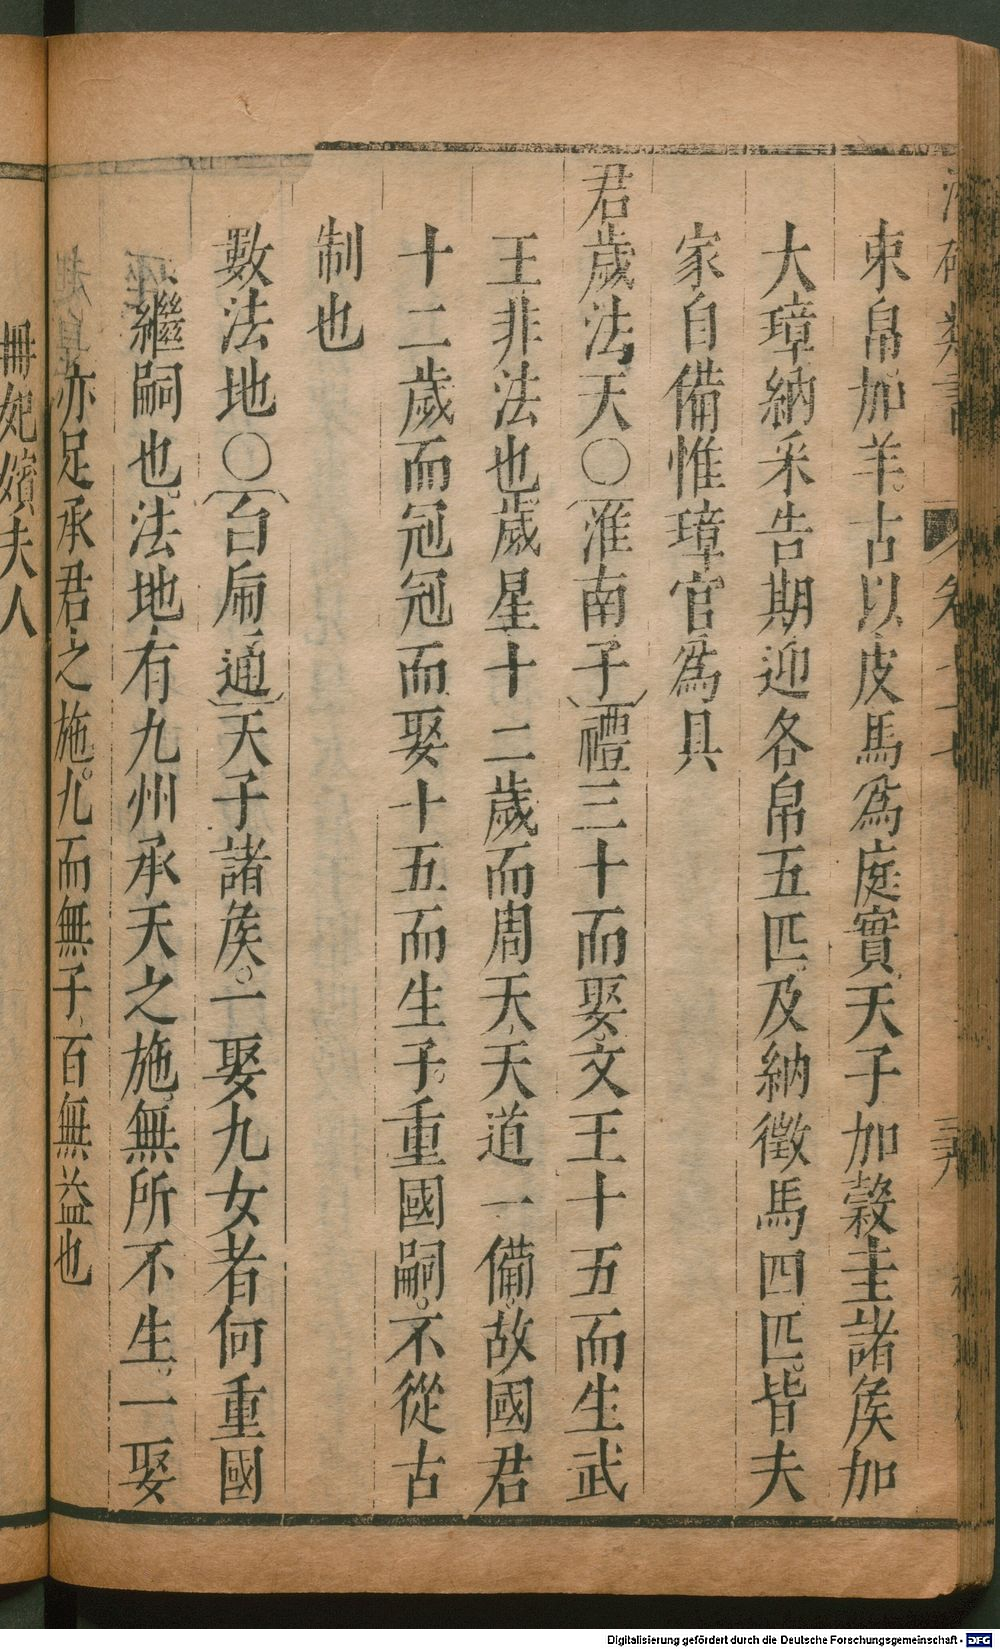 束帛加羊。古以皮馬爲庭實、天子加穀圭諸矦加
大璋納采告期迎各帛五匹、及納徵馬四匹。皆夫
家自備惟璋官爲具
君歲法天〇淮南子禮三十而娶、文王十五而生武
王非法也歲星十二歲而周天、天道一備。故國君
十二歲而冠冠而娶十五而生子。重國嗣。不從古
制也
數法地〇白虎通天子諸矦。一娶九女者何重國
繼嗣也。法地有九州承天之施。無所不生。一娶
亦足承君之施。九而無子、百無益也
冊妃嬪夫人
Digitalisierung gefördert durch die Deutsche Forschungsgemeinschaft - DFG